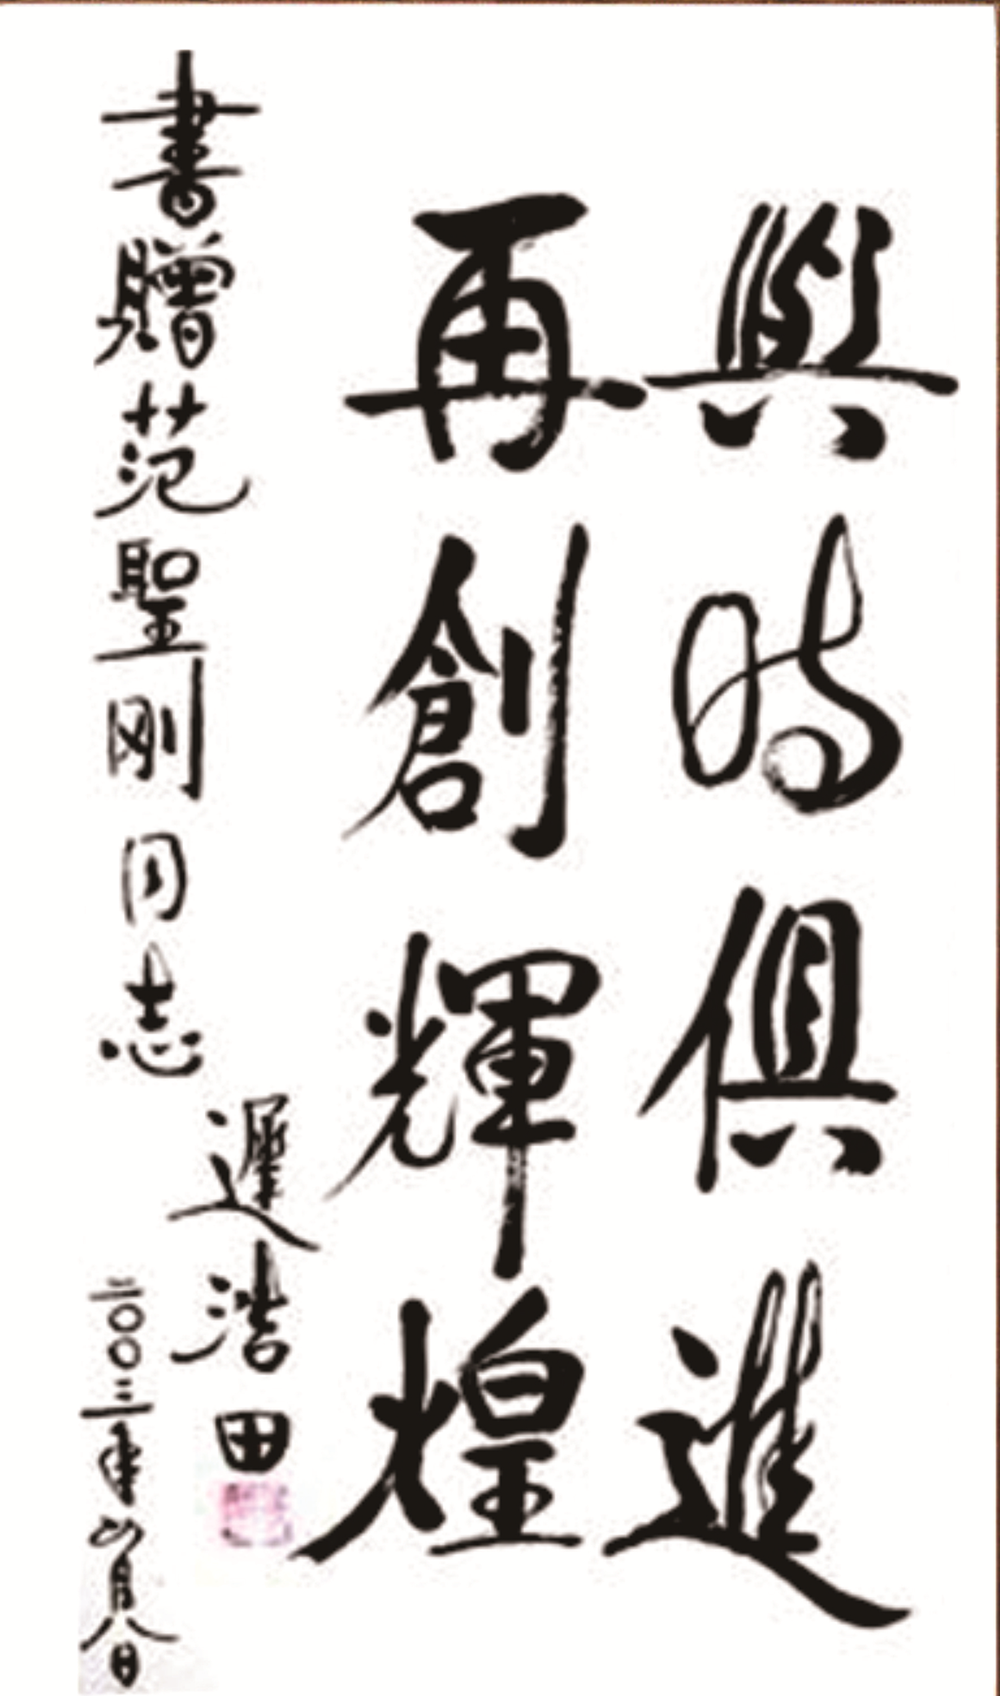 與時俱進
再創輝煌
書贈范聖剛同志
遲浩田
二〇〇三年六月八日